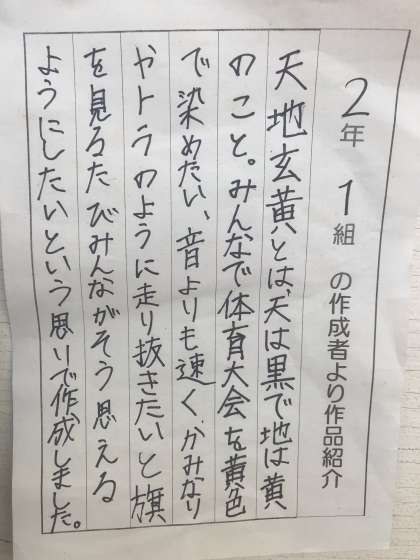 2年 1組 の作成者より作品紹介
天地玄黄とは、天は黒で地は黄
のこと。みんなで体育大会を黄色
で染めたい、音よりも速くかみなり
やトラのように走り抜きたいと旗
を見るたびみんながそう思える
ようにしたいという思いで作成しました。